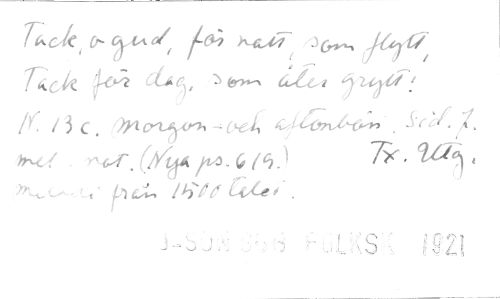 Tack, o gud, för natt, som flytt,
Tack för dag, som åter grytt!
N. 13 c. Morgon- och aftonbön. Sid. 7.
mel. not. (Nya ps. 619.) Tx. Utg.
från 1500 talet.
FOLKSK 1921